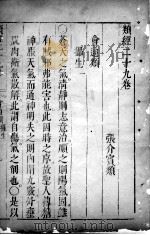 類經二十九卷
張介賓類
會通類
攝生
○蒼天之氣清靜則志意治順之則陽氣固雖
有賊邪弗能害也此因時之序故聖人傳精
神服天氣而通神明失之則內閉九竅外壅
肌肉衛氣散解此謂自傷氣之削也○是以